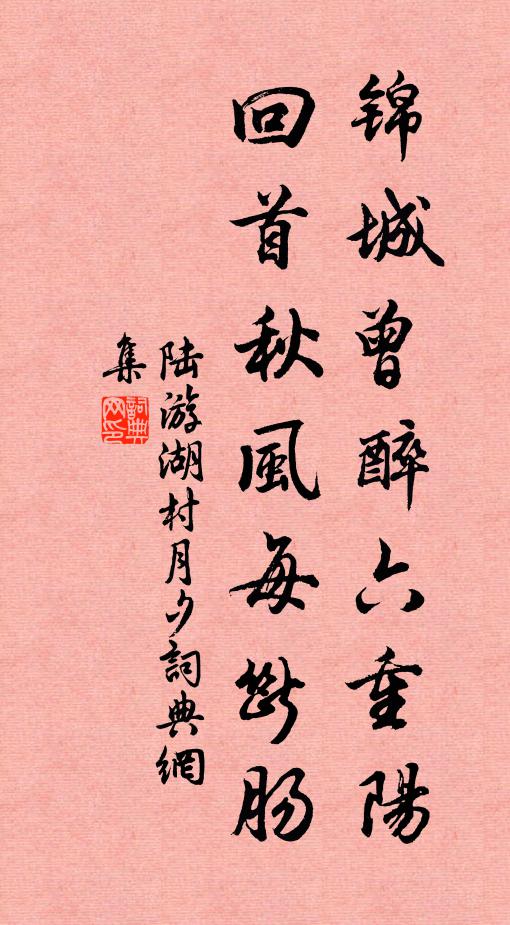 锦城曾醉六重陽
回首秋風每斷腸
陆游湖村月夕詞典網
集
詞典網印